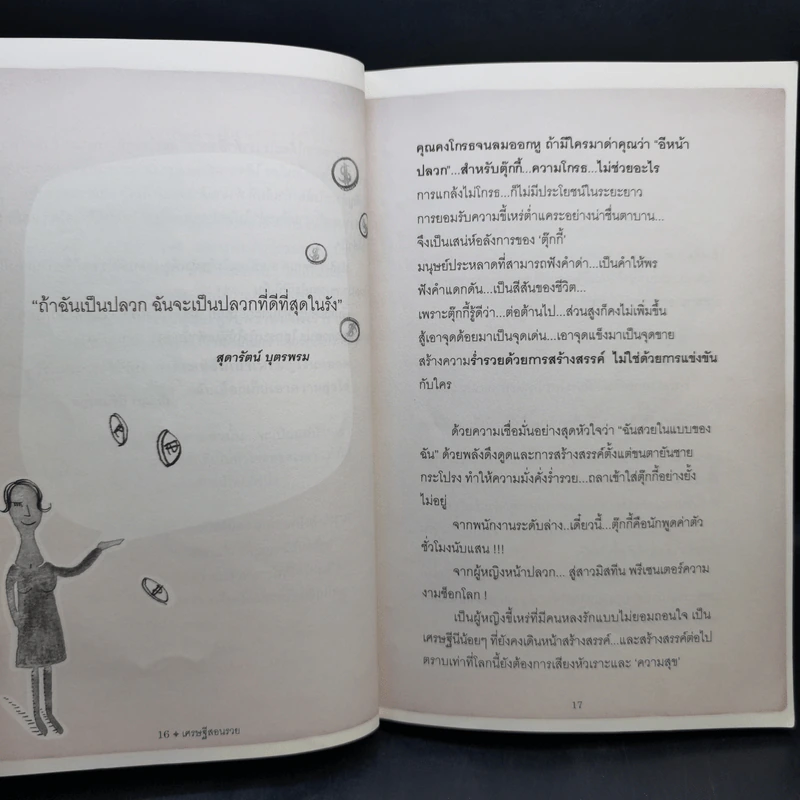 “ถ้าฉันเป็นปลวก ฉันจะเป็นปลวกที่ดีที่สุดในรัง”
สุดารัตน์ บุตรพรม
16 + เศรษฐีสอนรวย
คุณคงโกรธจนลมออกหู ถ้ามีใครมาด่าคุณว่า “อีหน้า
ปลวก”...สำหรับตุ๊กกี้...ความโกรธ...ไม่ช่วยอะไร
การแกล้งไม่โกรธ...ก็ไม่มีประโยชน์ในระยะยาว
การยอมรับความขี้เหร่ต่ำแคระอย่างน่าชื่นตาบาน...
จึงเป็นเสน่ห์อลังการของ ‘ตุ๊กกี้’
มนุษย์ประหลาดที่สามารถฟังคำด่า...เป็นคำให้พร
ฟังคำแดกดัน...เป็นสีสันของชีวิต...
เพราะตุ๊กกี้รู้ดีว่า...ต่อต้านไป...ส่วนสูงก็คงไม่เพิ่มขึ้น
สู้เอาจุดด้อยมาเป็นจุดเด่น...เอาจุดแข็งมาเป็นจุดขาย
สร้างความร่ำรวยด้วยการสร้างสรรค์ ไม่ใช่ด้วยการแข่งขัน
กับใคร
ด้วยความเชื่อมั่นอย่างสุดหัวใจว่า “ฉันสวยในแบบของ
ฉัน” ด้วยพลังดึงดูดและการสร้างสรรค์ตั้งแต่ขนตายันชาย
กระโปรง ทำให้ความมั่งคั่งร่ำรวย...ถลาเข้าใส่ตุ๊กกี้อย่างยั้ง
ไม่อยู่
จากพนักงานระดับล่าง..เดี๋ยวนี้...ตุ๊กกี้คือนักพูดค่าตัว
ชั่วโมงนับแสน !!!
จากผู้หญิงหน้าปลวก... สู่สาวมิสทีน พรีเซนเตอร์ความ
งามช็อกโลก !
เป็นผู้หญิงขี้เหร่ที่มีคนหลงรักแบบไม่ยอมถอนใจ เป็น
เศรษฐีนีน้อยๆ ที่ยังคงเดินหน้าสร้างสรรค์...และสร้างสรรค์ต่อไป
ตราบเท่าที่โลกนี้ยังต้องการเสียงหัวเราะและ ‘ความสุข’
17